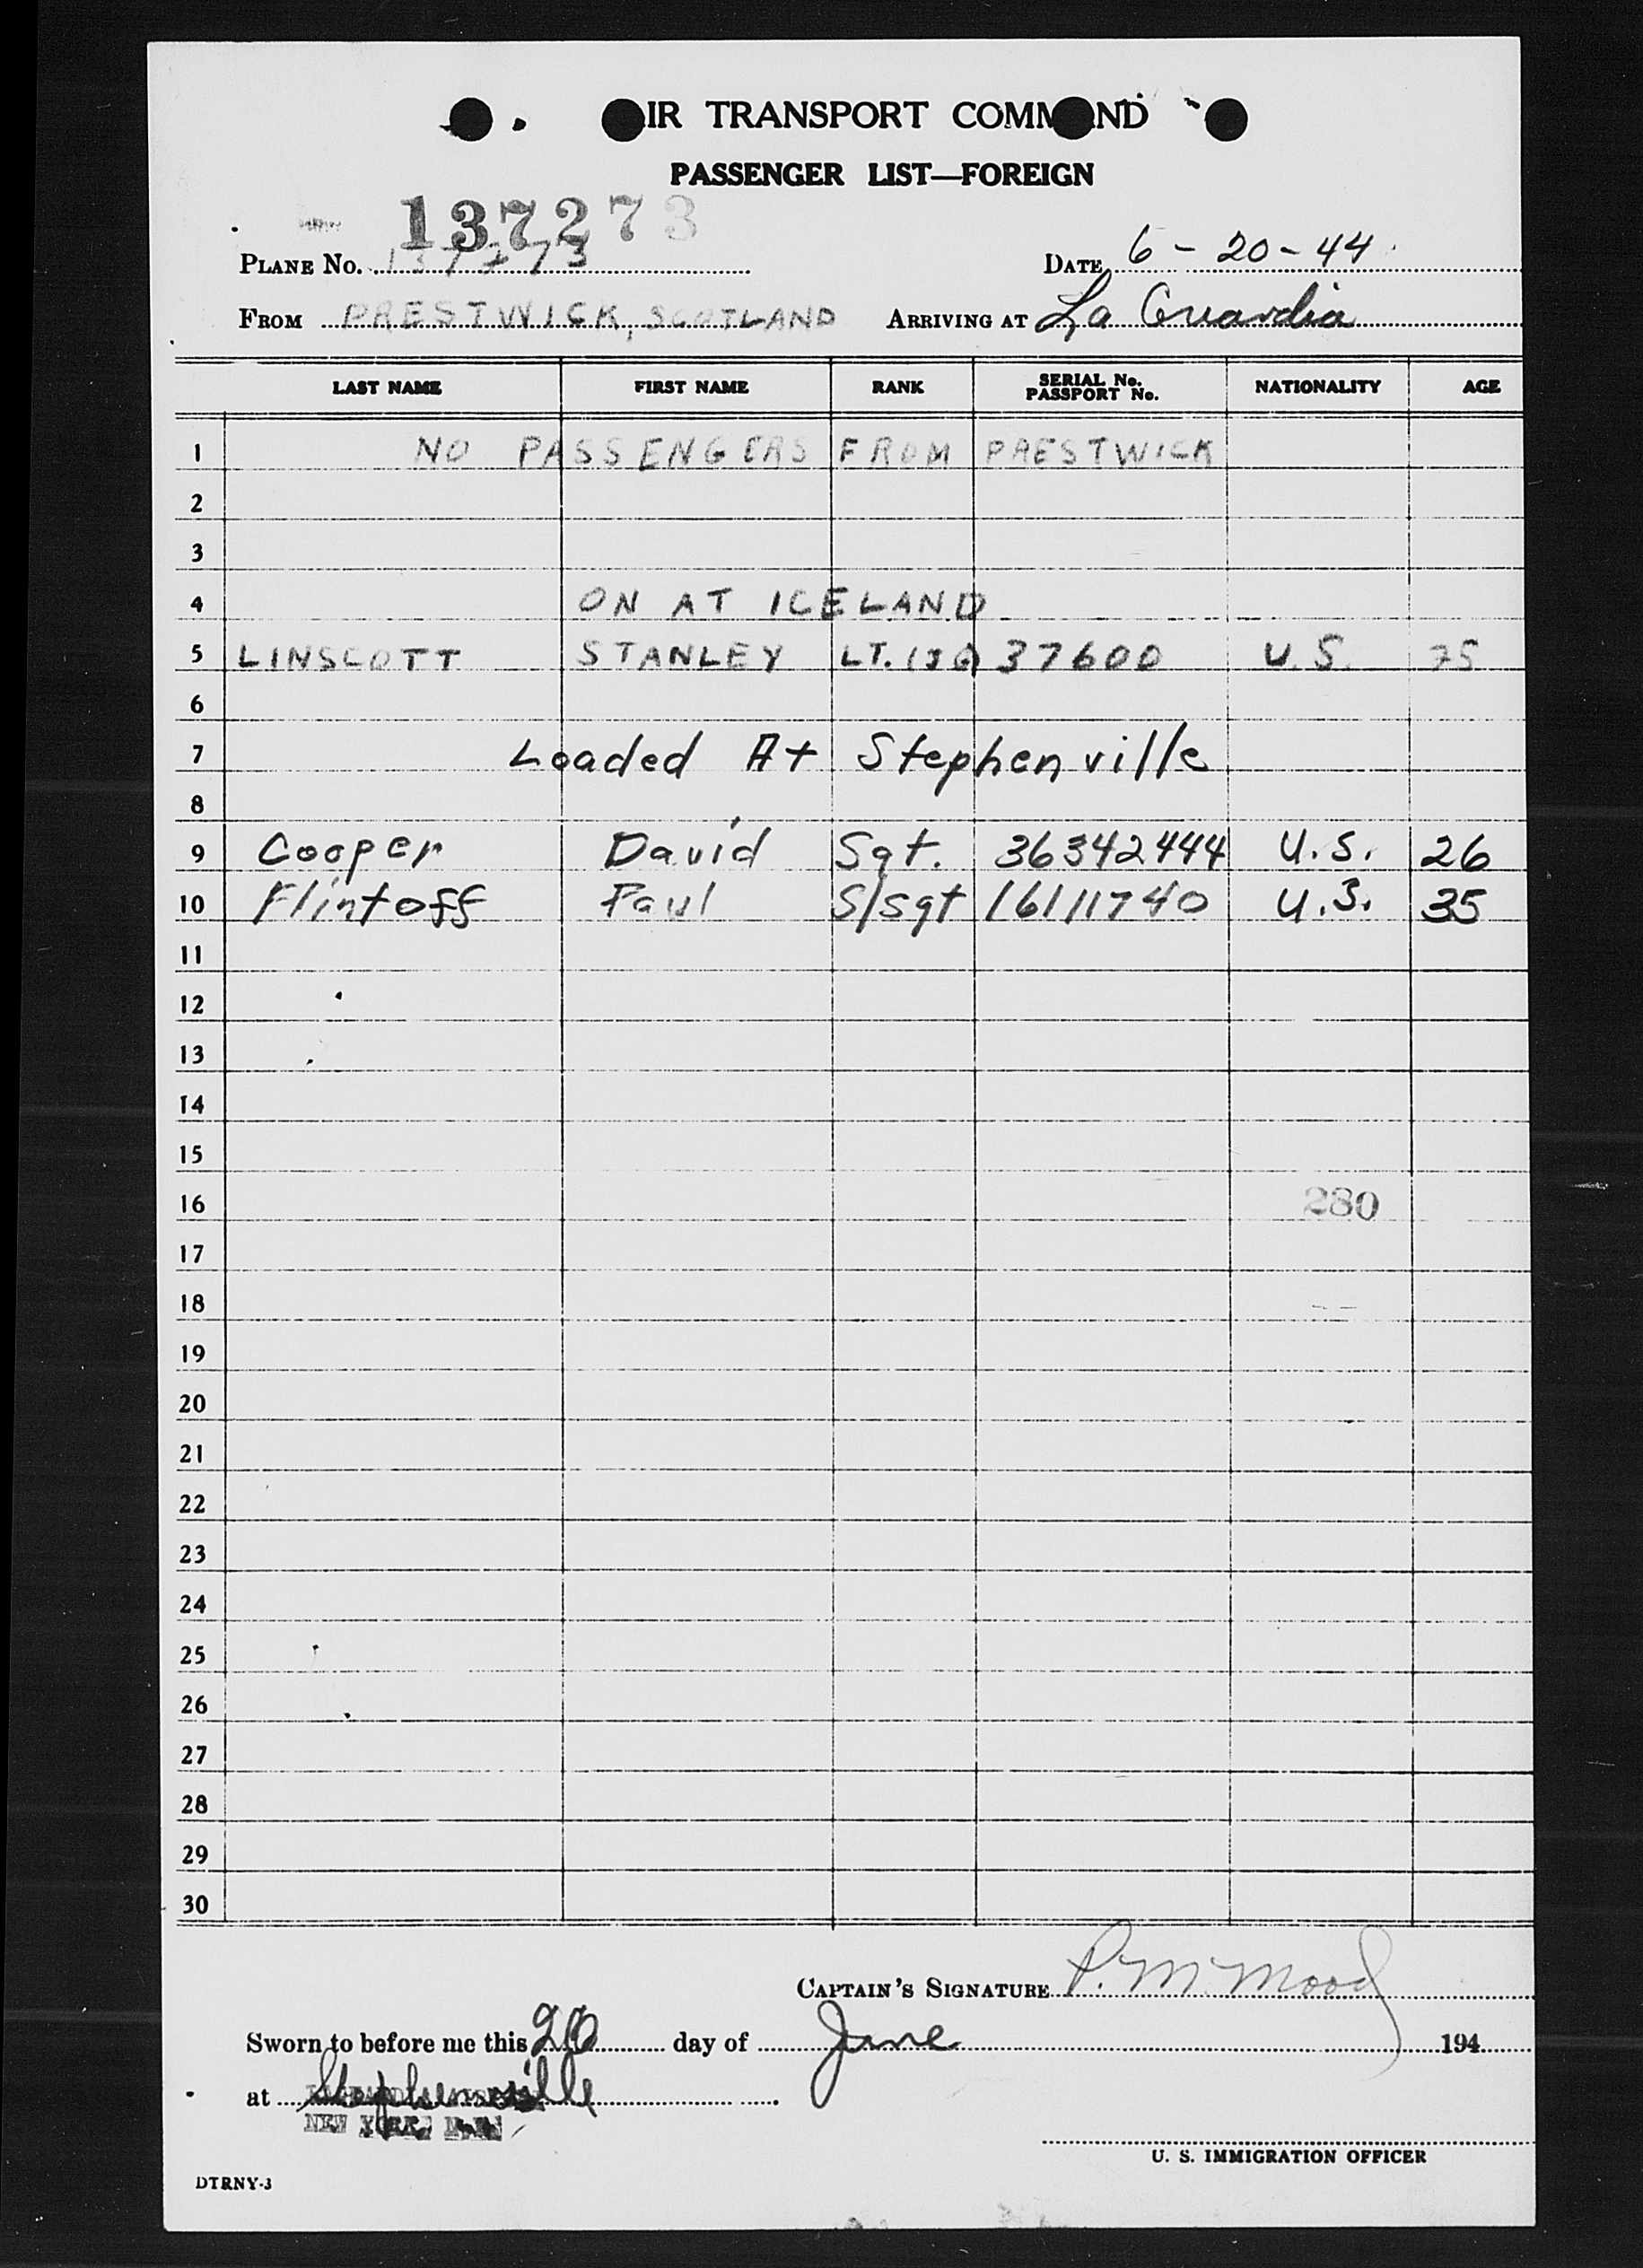 AIR TRANSPORT COMMAND
PASSENGER LIST—FOREIGN
137273
PLANE No. 137273 DATE 6 - 20 - 44
FROM PRESTWICK, SCOTLAND ARRIVING AT La Guardia
LAST NAME FIRST NAME RANK SERIAL No. PASSPORT No. NATIONALITY AGE
1 NO PASSENGERS FROM PRESTWICK
2
3
4 ON AT ICELAND
5 LINSCOTT STANLEY LT. (JG) 37600 U.S.
6
7 Loaded At Stephenville
8
9 Cooper David Sgt. 36342444 U.S. 26
10 Flintoff Paul S/Sgt 16111740 U.S. 35
11
12
13
14
15
16 280
17
18
19
20
21
22
23
24
25
26
27
28
29
30
CAPTAIN'S SIGNATURE P. M. Mood
Sworn to before me this 20 day of June 194
at Stephenville
NEW YORK, N.Y.
U. S. IMMIGRATION OFFICER
DTRNY-3